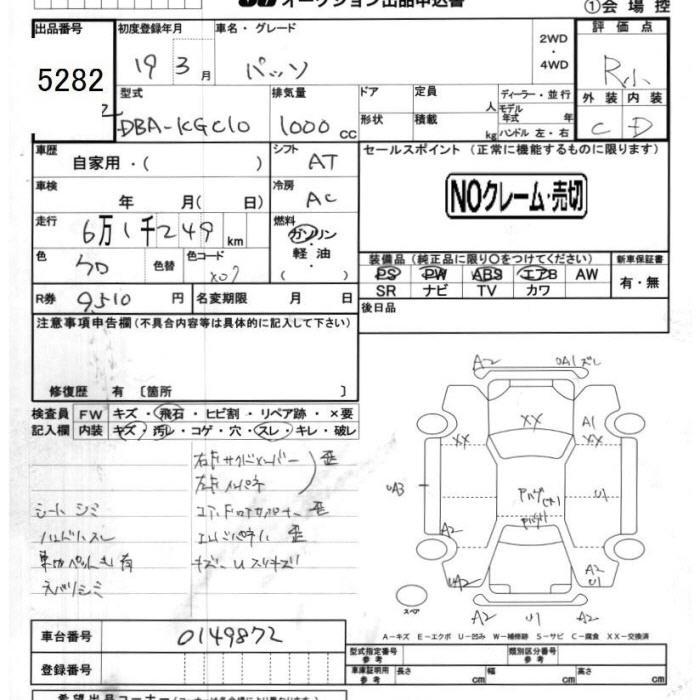 オークション出品申込書 ①会場控
出品番号 初度登録年月 車名・グレード 2WD ・ 4WD 評価点
5282 19 3月 パッソ
R
型式 排気量 ドア 定員 人 ディーラー・並行 外装 内装
DBA-KGC10 1000 cc 形状 積載 kg モデル年式 年 ハンドル 左・右 C D
車歴 自家用・( ) シフト AT セールスポイント (正常に機能するものに限ります)
車検 年 月(日) 冷房 AC NOクレーム・売切
走行 6万1千249 km 燃料 ガソリン・軽油・( )
色 クロ 色替 色コード X07 装備品 (純正品に限り○をつけてください) 新車保証書
PS PW ABS エアB AW 有・無
SR ナビ TV カワ
R券 9,510 円 名変期限 月 日 後日品
注意事項申告欄 (不具合内容等は具体的に記入して下さい)
修復歴 有 〔箇所 〕
検査員 FW キズ・飛石・ヒビ割・リペア跡・×要
記入欄 内装 キズ・汚レ・コゲ・穴・スレ・キレ・破レ
右F サイドメンバー 歪
左F インパネ
シートシミ コアF ロアカバナー 歪
ハンドルスレ エンドパネル 歪
車内ペット毛 有 キズ・Uスリキズ
天バリシミ
A2 UA1ズレ
XX A1
XX XX
UA3 U1
A2
UA2 A2 U1
スペア A2 U1 A2
A−キズ E−エクボ U−凹み W−補修跡 S−サビ C−腐食 XX−交換済
車台番号 0149872
型式指定番号 参考 類別区分番号 参考
登録番号 車庫証明用 参考 長さ cm 幅 cm 高さ cm
希望出品コーナー